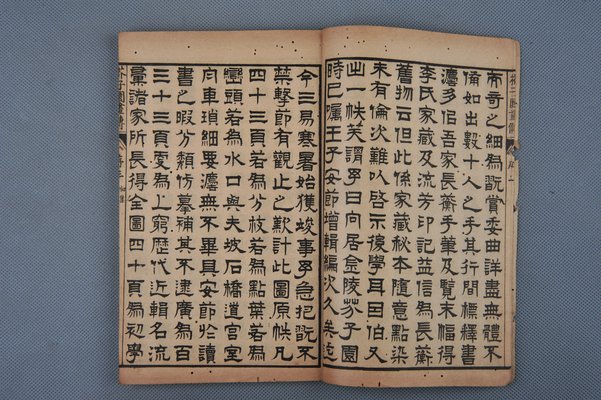 而奇之細為翫賞委曲詳盡無體不
備如出數十人之手其行間標釋書
灋多佀吾家長蘅手筆及覽末幅得
李氏家藏及流芳印記益信為長蘅
舊物云但此係家藏秘本隨意點染
未有倫次難以啓示後學耳因伯又
出一帙笑謂予曰向居金陵芥子園
時已囑王子安節增輯編次久矣迄
今三易寒暑始獲竣事予急把翫不
禁擊節有觀止之歎計此圖原帙凡
四十三頁若為分枝若為點葉若為
巒頭若為水口與夫坡石橋道宮室
舟車瑣細要灋無不畢具安節於讀
書之暇分類仿摹補其不逮廣為百
三十三頁更為上窮歷代近輯名流
彙諸家所長得全圖四十頁為初學
芥子園畫傳